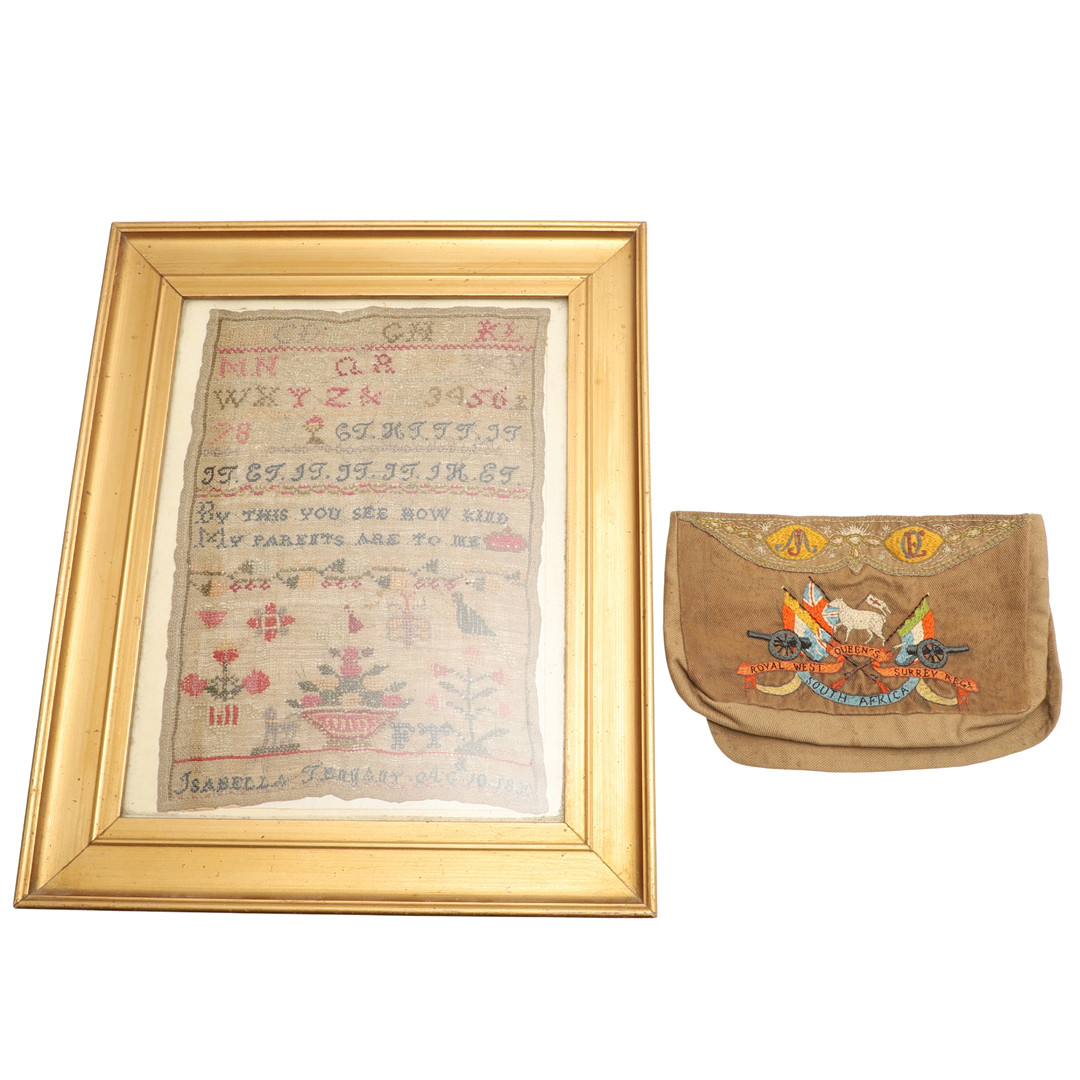 CD GH KL
MN QR V
WXYZ& 3456
78 GT.HT.TT.JT
JT.ET.JT.JT.JT.JH.ET.
BY THIS YOU SEE HOW KIND
MY PARENTS ARE TO ME
FT
ISABELLA AG 10.18
QUEEN'S
ROYAL WEST SURREY REGT
SOUTH AFRICA